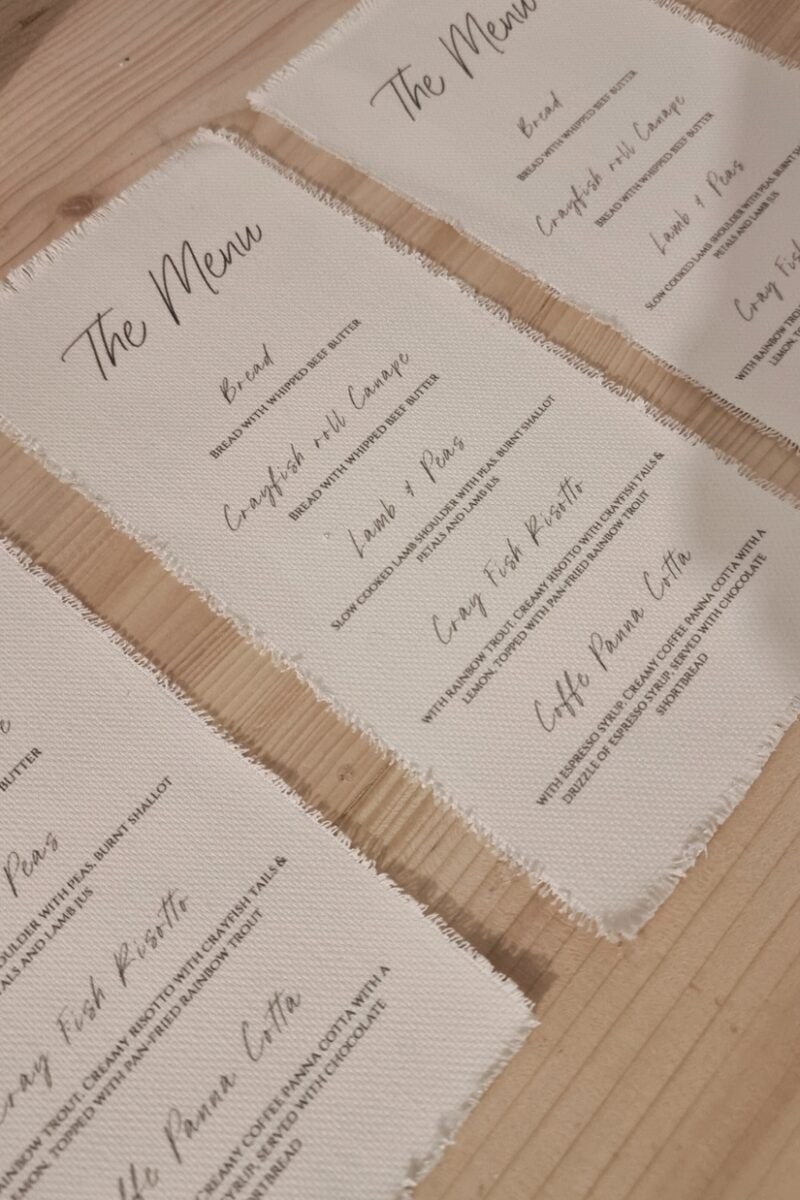 The Menu
Bread
BREAD WITH WHIPPED BEEF BUTTER
Crayfish roll Canape
BREAD WITH WHIPPED BEEF BUTTER
Lamb + Peas
SLOW COOKED LAMB SHOULDER WITH PEAS, BURNT SHALLOT
PETALS AND LAMB JUS
Cray Fish Risotto
WITH RAINBOW TROUT, CREAMY RISOTTO WITH CRAYFISH TAILS &
LEMON, TOPPED WITH PAN-FRIED RAINBOW TROUT
Coffe Panna Cotta
WITH ESPRESSO SYRUP, CREAMY COFFEE PANNA COTTA WITH A
DRIZZLE OF ESPRESSO SYRUP, SERVED WITH CHOCOLATE
SHORTBREAD
The Menu
Bread
BREAD WITH WHIPPED BEEF BUTTER
Crayfish roll Canape
BREAD WITH WHIPPED BEEF BUTTER
Lamb + Peas
SLOW COOKED LAMB SHOULDER WITH PEAS, BURNT
PETALS AND LAMB JUS
Cray Fish
WITH RAINBOW
LEMON,
BUTTER
Peas
SHOULDER WITH PEAS, BURNT SHALLOT
PETALS AND LAMB JUS
Cray Fish Risotto
RAINBOW TROUT, CREAMY RISOTTO WITH CRAYFISH TAILS &
LEMON, TOPPED WITH PAN-FRIED RAINBOW TROUT
Coffe Panna Cotta
CREAMY COFFEE PANNA COTTA WITH A
OF ESPRESSO SYRUP, SERVED WITH CHOCOLATE
SHORTBREAD